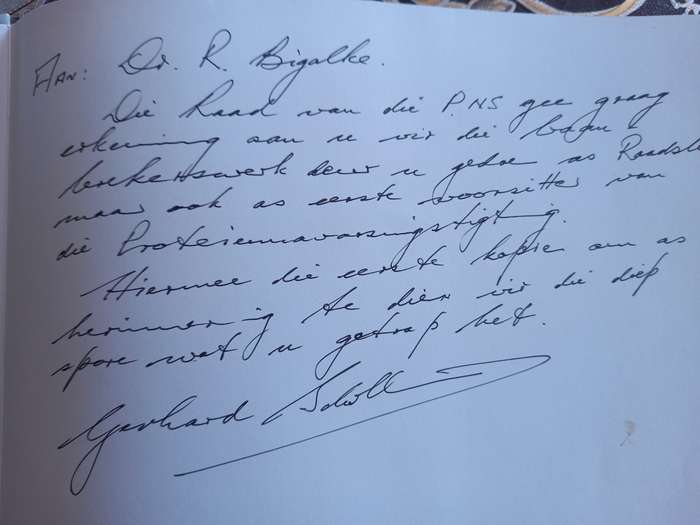 AAN: Dr. R. Bigalke.
Die Raad van die PNS gee graag
erkenning aan u vir die baan
brekerswerk deur u gedoen as Raadsl
maar ook as eerste voorsitter van
die Proteïennavorsingstigting.
Hiermee die eerste kopie om as
herinnering te dien vir die diep
spore wat u getrap het.
Gerhard Scholtz